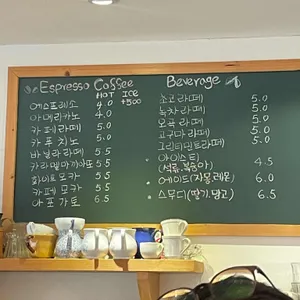 Espresso Coffee
HOT ICE
+500
에스프레소 4.0
아메리카노 4.0
카페라떼 5.0
카푸치노 5.0
바닐라라떼 5.5
카라멜마끼아또 5.5
화이트모카 5.5
카페모카 5.5
아포가토 6.5
Beverage
초코라떼 5.0
녹차라떼 5.0
오곡라떼 5.0
고구마라떼 5.0
그린티민트라떼 5.0
아이스티 4.5
(석류,복숭아)
에이드(자몽,레몬) 6.0
스무디(딸기,망고) 6.5